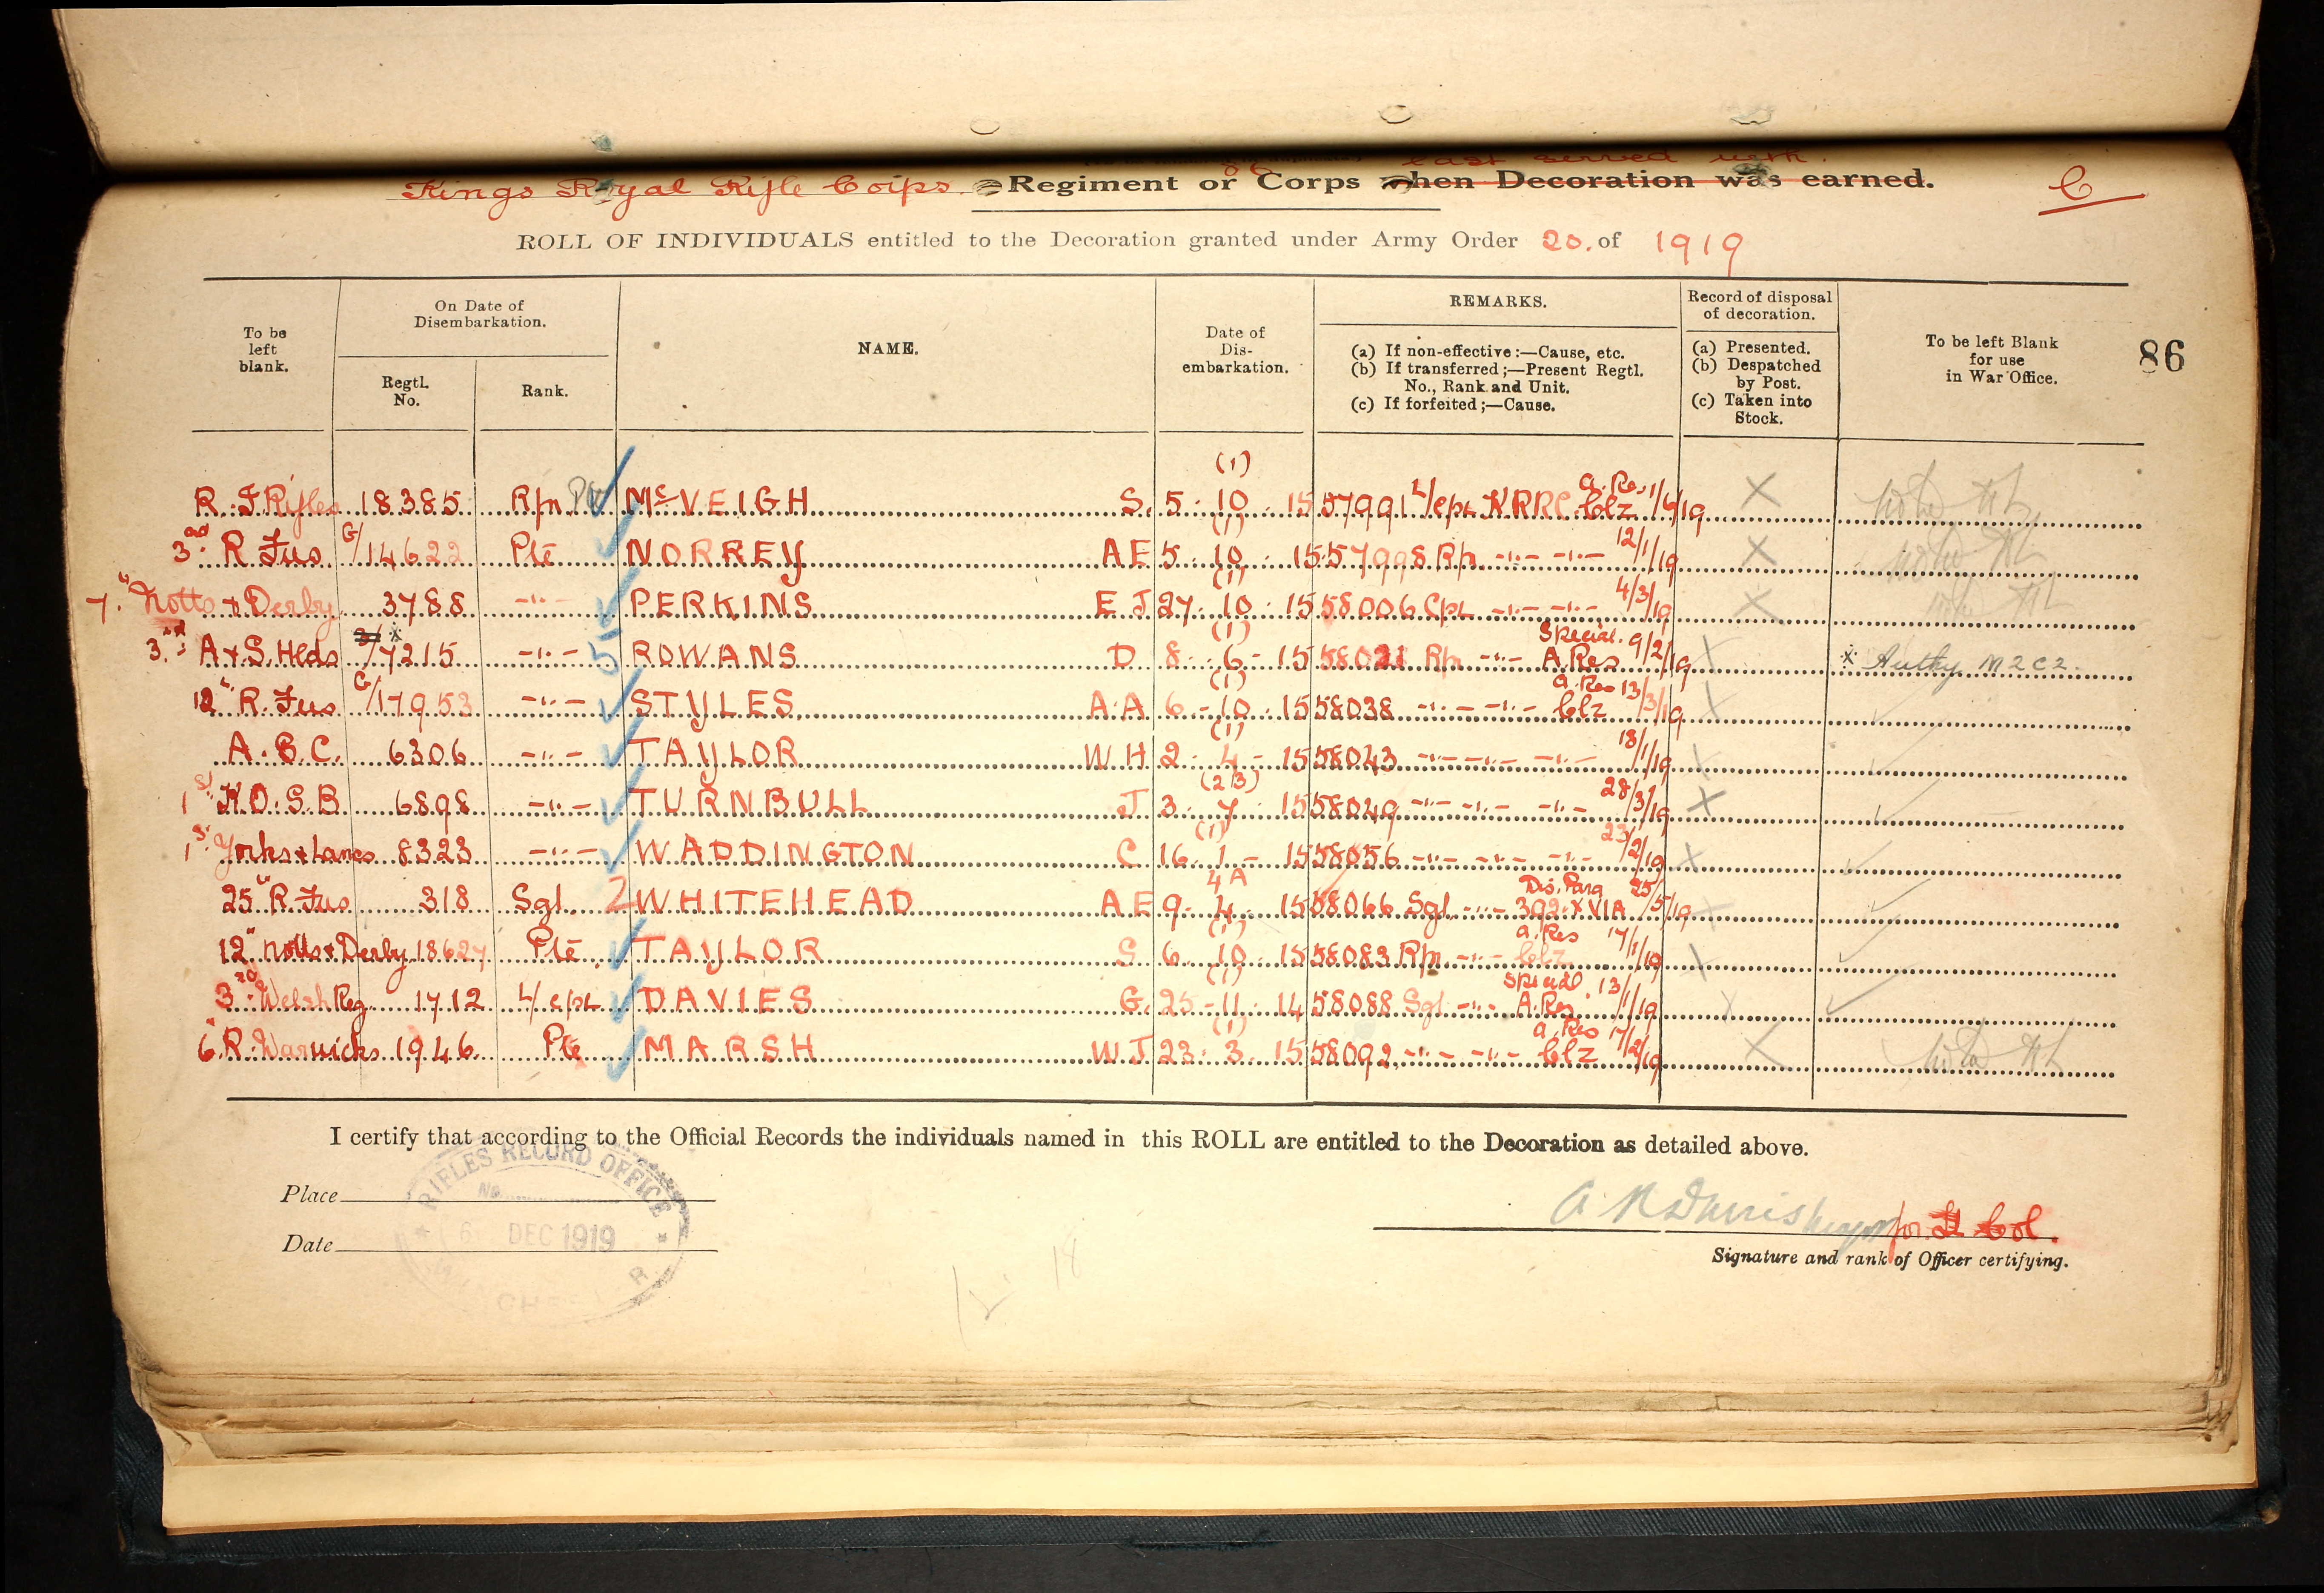 last served with.
Kings Royal Rifle Corps. Regiment or Corps when Decoration was earned.
C
ROLL OF INDIVIDUALS entitled to the Decoration granted under Army Order 20. of 1919
To be left blank.
On Date of Disembarkation.
Regtl. No.
Rank.
NAME.
Date of Disembarkation.
REMARKS.
(a) If non-effective:—Cause, etc.
(b) If transferred;—Present Regtl. No., Rank and Unit.
(c) If forfeited;—Cause.
Record of disposal of decoration.
(a) Presented.
(b) Despatched by Post.
(c) Taken into Stock.
To be left Blank for use in War Office.
86
R. I Rifles 18385 Rfn Pte McVEIGH S. (1) 5. 10. 15 57991 L/Cpl KRRC A. Res. Clz 1/4/19 X
3rd R Fus G/14622 Pte NORREY A E (1) 5. 10. 15 57998 Rfn -"- -"- 12/1/19 X
7." Notts & Derby 3788 -"- PERKINS E J (1) 27. 10. 15 58006 Cpl -"- -"- 4/3/19 X
3rd A & S. Hlds 3/7215 X -"- 5 ROWANS D (1) 8. 6 - 15 58021 Rfn -"- Special A Res 9/2/19 X X Authy M2C2.
12" R. Fus G/17953 -"- STYLES A. A (1) 6 - 10. 15 58038 -"- -"- A. Res Clz 13/3/19 X
A. B. C. 6306 -"- TAYLOR W H (1) 2. 4 - 15 58043 -"- -"- -"- 18/1/19 X
1st K. O. S. B 6898 -"- TURNBULL J (2B) 3. 7. 15 58049 -"- -"- -"- 28/3/19 X
1st Yorks & Lancs 8323 -"- WADDINGTON C (1) 16. 1 - 15 58056 -"- -"- -"- 23/2/19 X
25" R. Fus 318 Sgt. 2 WHITEHEAD A E 4A 9. 4. 15 58066 Sgt -"- Dis. Para 392. XVIA 25/5/19 X
12" Notts & Derby 18627 Pte TAYLOR S (1) 6. 10. 15 58083 Rfn -"- A. Res Clz 17/1/19 X
3rd Welsh Reg. 1712 L/Cpl DAVIES G. (1) 25 - 11. 14 58088 Sgt -"- Special A. Res 13/1/19 X
6" R. Warwicks 1946 Pte MARSH W J (1) 23. 3. 15 58092 -"- -"- A. Res Clz 17/2/19 X
I certify that according to the Official Records the individuals named in this ROLL are entitled to the Decoration as detailed above.
RIFLES RECORD OFFICE
No.
Place
6 DEC 1919
Date
for Lt Col.
Signature and rank of Officer certifying.
18